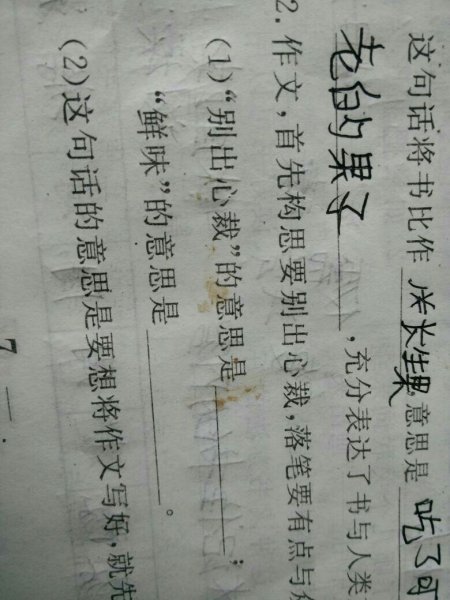 这句话将书比作 长生果,意思是 吃了可
老的果子____,充分表达了书与人类
2. 作文,首先构思要别出心裁,落笔要有点与
(1)“别出心裁”的意思是________;
“鲜味”的意思是________。
(2)这句话的意思是要想将作文写好,就先
7